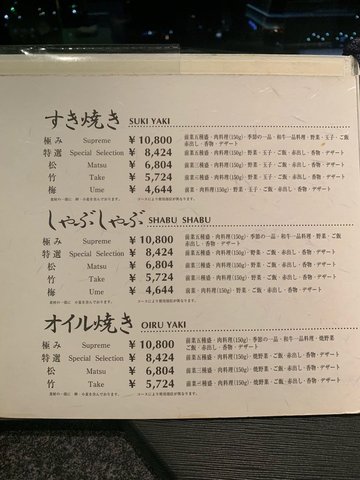 すき焼き SUKI YAKI
極み Supreme ¥ 10,800 前菜五種盛・肉料理(150g)・季節の一品・和牛一品料理・野菜・玉子・ご飯
赤出し・香物・デザート
特選 Special Selection ¥ 8,424 前菜五種盛・肉料理(150g)・野菜・玉子・ご飯・赤出し・香物・デザート
松 Matsu ¥ 6,804 前菜三種盛・肉料理(150g)・野菜・玉子・ご飯・赤出し・香物・デザート
竹 Take ¥ 5,724 前菜三種盛・肉料理(150g)・野菜・玉子・ご飯・赤出し・香物・デザート
梅 Ume ¥ 4,644 前菜・肉料理(150g)・野菜・玉子・ご飯・赤出し・香物・デザート
コースにより使用部位が異なります。
しゃぶしゃぶ SHABU SHABU
極み Supreme ¥ 10,800 前菜五種盛・肉料理(150g)・季節の一品・和牛一品料理・野菜・ご飯
赤出し・香物・デザート
特選 Special Selection ¥ 8,424 前菜五種盛・肉料理(150g)・野菜・ご飯・赤出し・香物・デザート
松 Matsu ¥ 6,804 前菜三種盛・肉料理(150g)・野菜・ご飯・赤出し・香物・デザート
竹 Take ¥ 5,724 前菜三種盛・肉料理(150g)・野菜・ご飯・赤出し・香物・デザート
梅 Ume ¥ 4,644 前菜・肉料理(150g)・野菜・ご飯・赤出し・香物・デザート
コースにより使用部位が異なります。
オイル焼き OIRU YAKI
極み Supreme ¥ 10,800 前菜五種盛・肉料理(150g)・季節の一品・和牛一品料理・焼野菜
ご飯・赤出し・香物・デザート
特選 Special Selection ¥ 8,424 前菜五種盛・肉料理(150g)・焼野菜・ご飯・赤出し・香物・デザート
松 Matsu ¥ 6,804 前菜三種盛・肉料理(150g)・焼野菜・ご飯・赤出し・香物・デザート
竹 Take ¥ 5,724 前菜三種盛・肉料理(150g)・焼野菜・ご飯・赤出し・香物・デザート
コースにより使用部位が異なります。